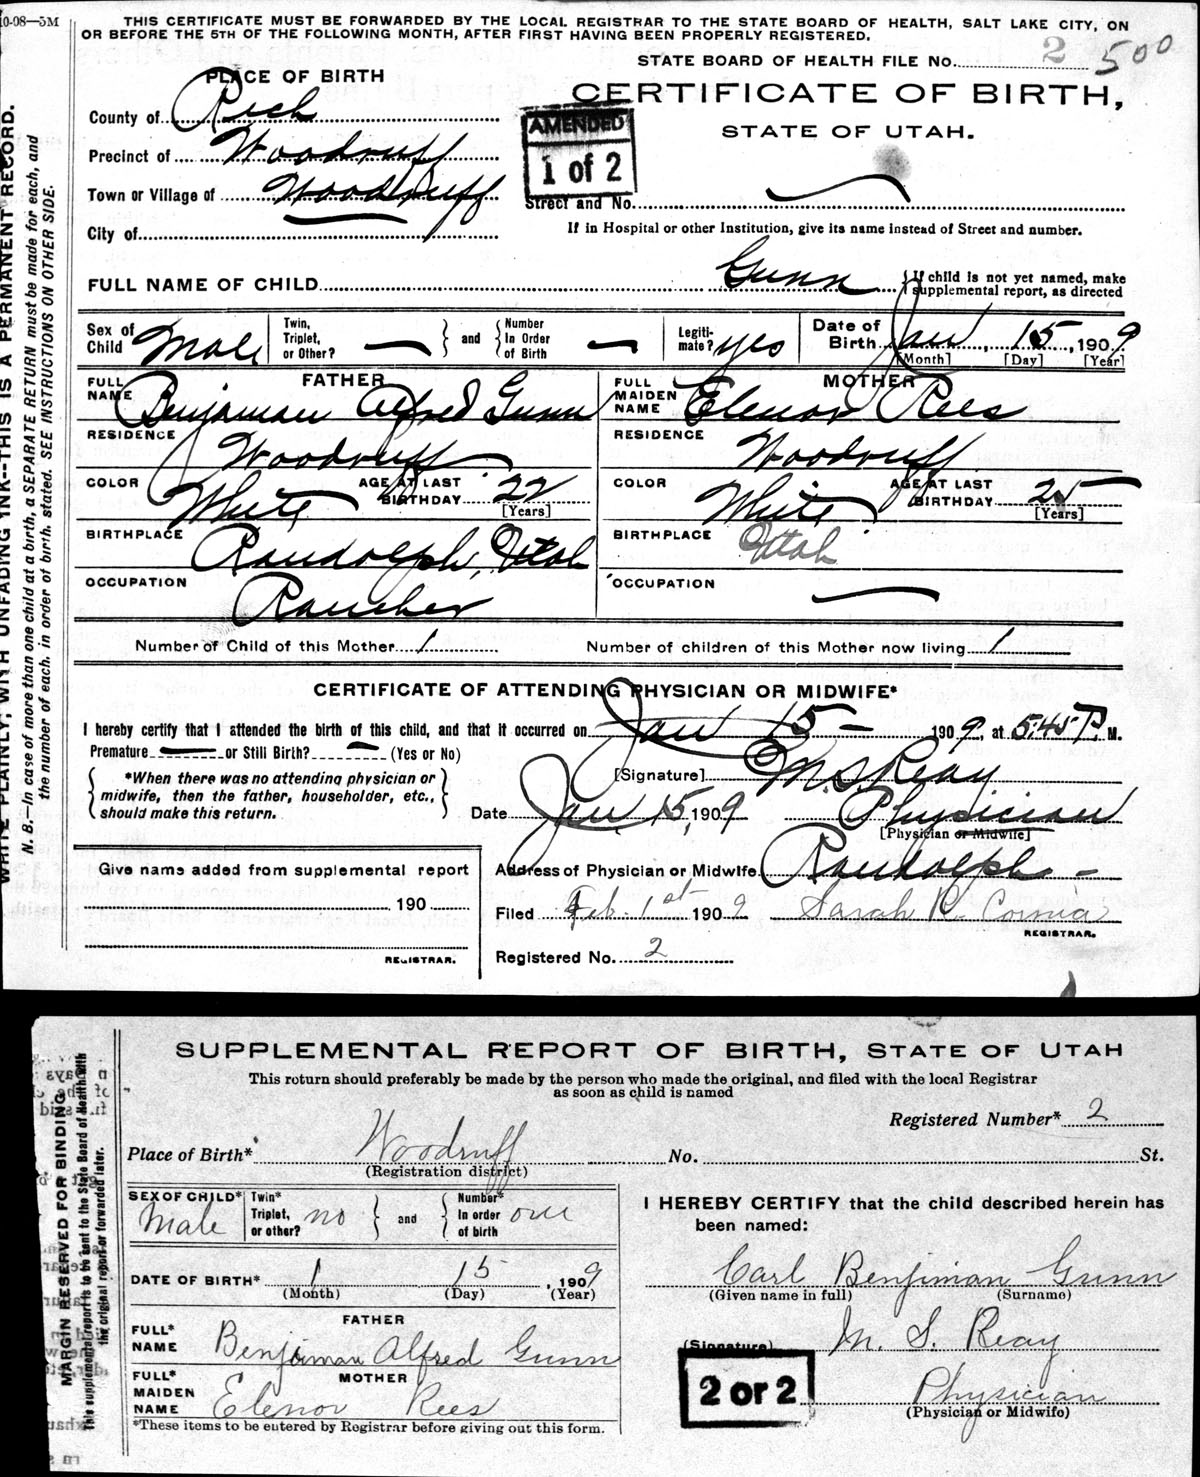 10-08—5M
THIS CERTIFICATE MUST BE FORWARDED BY THE LOCAL REGISTRAR TO THE STATE BOARD OF HEALTH, SALT LAKE CITY, ON
OR BEFORE THE 5TH OF THE FOLLOWING MONTH, AFTER FIRST HAVING BEEN PROPERLY REGISTERED.
STATE BOARD OF HEALTH FILE No. 2 500
PLACE OF BIRTH
CERTIFICATE OF BIRTH,
STATE OF UTAH.
County of Rich
Precinct of Woodruff
Town or Village of Woodruff
City of
AMENDED
1 of 2
Street and No.
If in Hospital or other Institution, give its name instead of Street and number.
FULL NAME OF CHILD Gunn { If child is not yet named, make supplemental report, as directed
Sex of Child Male
Twin, Triplet, or Other? — } and { Number In Order of Birth —
Legitimate? yes
Date of Birth Jan 15, 1909
[Month] [Day] [Year]
FATHER
FULL NAME Benjaman Alfred Gunn
RESIDENCE Woodruff
COLOR White AGE AT LAST BIRTHDAY 22 [Years]
BIRTHPLACE Randolph, Utah
OCCUPATION Rancher
MOTHER
FULL MAIDEN NAME Elenor Rees
RESIDENCE Woodruff
COLOR White AGE AT LAST BIRTHDAY 25 [Years]
BIRTHPLACE Utah
OCCUPATION —
Number of Child of this Mother 1 Number of children of this Mother now living 1
CERTIFICATE OF ATTENDING PHYSICIAN OR MIDWIFE*
I hereby certify that I attended the birth of this child, and that it occurred on Jan 15— 1909, at 5:45 P. M.
Premature — or Still Birth? — (Yes or No)
*When there was no attending physician or
midwife, then the father, householder, etc.,
should make this return.
[Signature] M.S. Reay
Date Jan. 15, 1909 Physician
[Physician or Midwife]
Address of Physician or Midwife Randolph —
Filed Feb. 1st 1909 Sarah R. Cornia
REGISTRAR.
Registered No. 2
Give name added from supplemental report
190
REGISTRAR.
WRITE PLAINLY, WITH UNFADING INK--THIS IS A PERMANENT RECORD.
N. B.—In case of more than one child at a birth, a SEPARATE RETURN must be made for each, and
the number of each, in order of birth, stated. SEE INSTRUCTIONS ON OTHER SIDE.
SUPPLEMENTAL REPORT OF BIRTH, STATE OF UTAH
This return should preferably be made by the person who made the original, and filed with the local Registrar
as soon as child is named
Registered Number* 2
Place of Birth* Woodruff No. St.
(Registration district)
SEX OF CHILD* Male
Twin* Triplet, or other? no } and { Number* In order of birth one
DATE OF BIRTH* 1 15, 1909
(Month) (Day) (Year)
FATHER
FULL* NAME Benjaman Alfred Gunn
MOTHER
FULL* MAIDEN NAME Elenor Rees
*These items to be entered by Registrar before giving out this form.
I HEREBY CERTIFY that the child described herein has
been named:
Carl Benjiman Gunn
(Given name in full) (Surname)
(Signature) M. S. Reay
2 or 2
Physician
(Physician or Midwife)
MARGIN RESERVED FOR BINDING
This supplemental report is to be sent to the State Board of Health with
the original report or forwarded later.